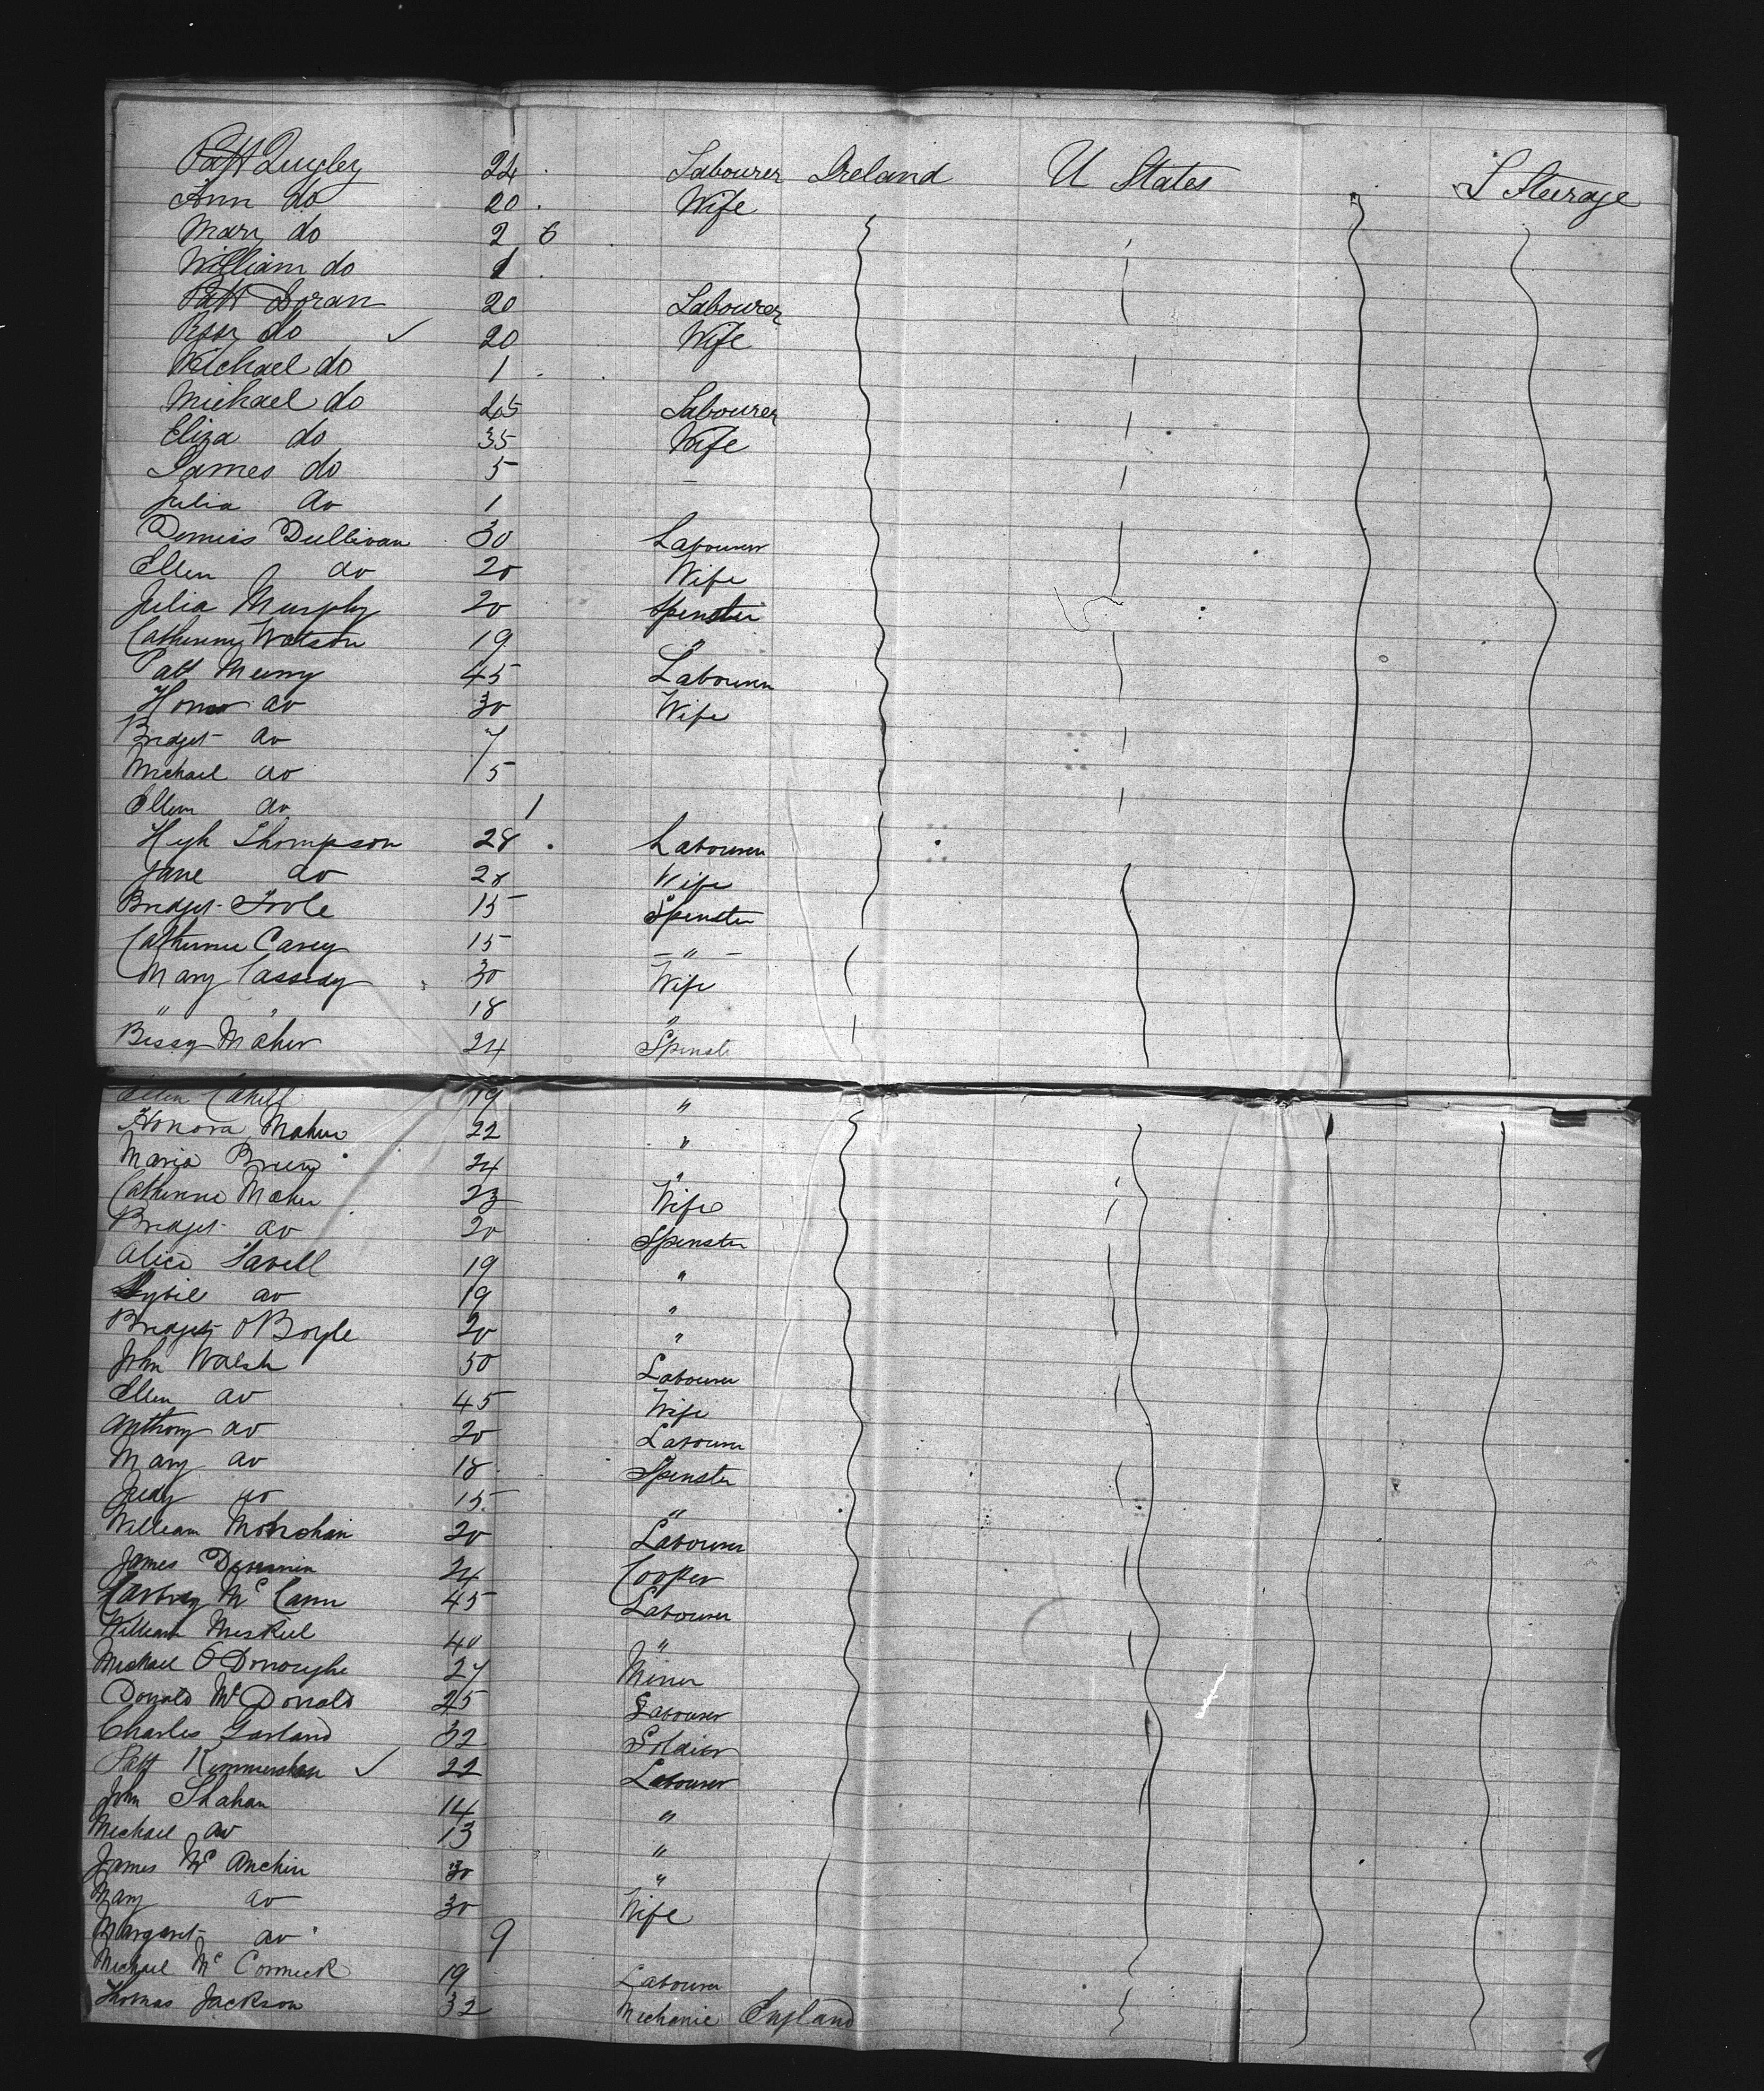 Patt Quigley 24 Labourer Ireland U States S Steerage
Ann do 20 Wife
Mary do 2 6
William do 1
Patt Doran 20 Labourer
Rose do ✓ 20 Wife
Michael do 1
Michael do 45 Labourer
Eliza do 35 Wife
James do 5
Julia do 1
Dennis Sullivan 30 Labourer
Ellen do 20 Wife
Julia Murphy 20 Spenster
Watson 19 "
Patt 45 Labourer
do 30 Wife
Bridget do 7
Michael do 5
Ellen do 1
Hugh Thompson 28 Labourer
Jane do 28 Wife
Bridget 15 Spenster
Catherine Carey 15 "
Mary Cassidy 30 Wife
" " 18 "
Bessy Maher 24 Spenst
Ellen Cahill 19 "
Honora Maher 22 "
Maria 24 "
Catherine Maher 23 Wife
Bridget do 20 Spenster
Alice 19 "
do 19 "
Bridget O Boyle 20 "
John Walsh 50 Labourer
Ellen do 45 Wife
Anthony do 20 Labourer
Mary do 18 Spenster
Judy do 15 "
William 20 Labourer
James 24 Cooper
Mc Cann 45 Labourer
William 40 "
Michael O Donoughe 27 Miner
Donald McDonald 25 Labourer
Charles Garland 32 Soldier
Patt ✓ 22 Labourer
John Shahan 14 "
Michael do 13 "
James Mc 30 "
Mary do 30 Wife
Margaret do 9
Michael Mc Cormick 19 Labourer
Thomas Jackson 32 Mechanic England